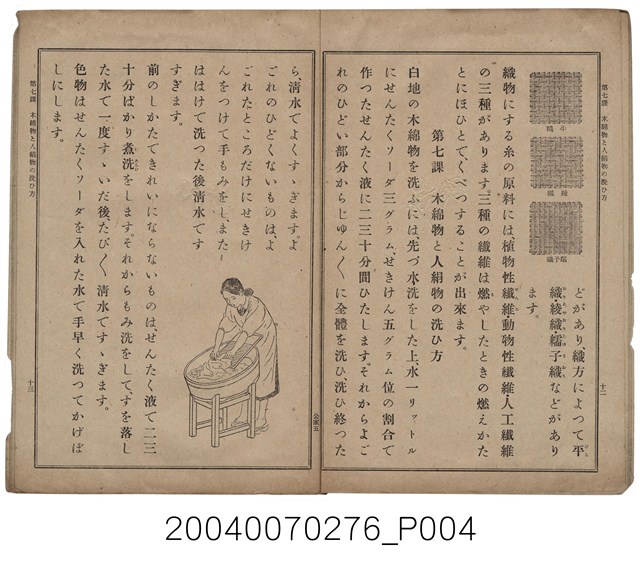 第七課 木綿物と人絹物の洗ひ方
十二
平織
綾織
繻子織
どがあり、織方によつて平
織・綾織・繻子織などがあり
ます。
織物にする糸の原料には植物性纖維・動物性纖維・人工纖維
の三種があります。三種の纖維は燃やしたときの燃えかた
とにほひとで、くべつすることが出來ます。
第七課 木綿物と人絹物の洗ひ方
白地の木綿物を洗ふには、先づ水洗をした上、水一リットル
にせんたくソーダ三グラム、せきけん五グラム位の割合で
作つたせんたく液に二三十分間ひたします。それからよご
れのひどい部分からじゆん〱に全體を洗ひ、洗ひ終つた
ら、清水でよくすゝぎます。よ
ごれのひどくないものは、よ
ごれたところだけにせきけ
んをつけて手もみをし、また
ははけで洗つた後清水です
すぎます。
前のしかたできれいにならないものは、せんたく液で二三
十分ばかり煮洗をします。それからもみ洗をして、すを落し
た水で一度すゝいだ後、たび〱清水ですゝぎます。
色物はせんたくソーダを入れた水で手早く洗つてかげぼ
しにします。
公家五
第七課 木綿物と人絹物の洗ひ方
十三
20040070276_P004